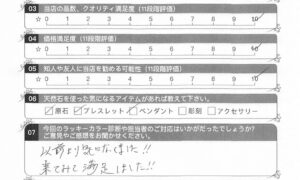 03 当店の品数、クオリティ満足度(11段階評価)
☆ 0 1 2 3 4 5 6 7 8 9 10
04 価格満足度(11段階評価)
☆ 0 1 2 3 4 5 6 7 8 9 10
05 知人や友人に当店を勧める可能性(11段階評価)
☆ 0 1 2 3 4 5 6 7 8 9 10
06 天然石を使った気になるアイテムがあれば教えて下さい。
□原石 □ブレスレット □ペンダント □彫刻 □アクセサリー
07 今回のラッキーカラー診断や担当者のご対応はいかがだったでしょうか?
ご意見やご感想をお聞かせください。
以前より気になってました!!
来てみて満足しました!!